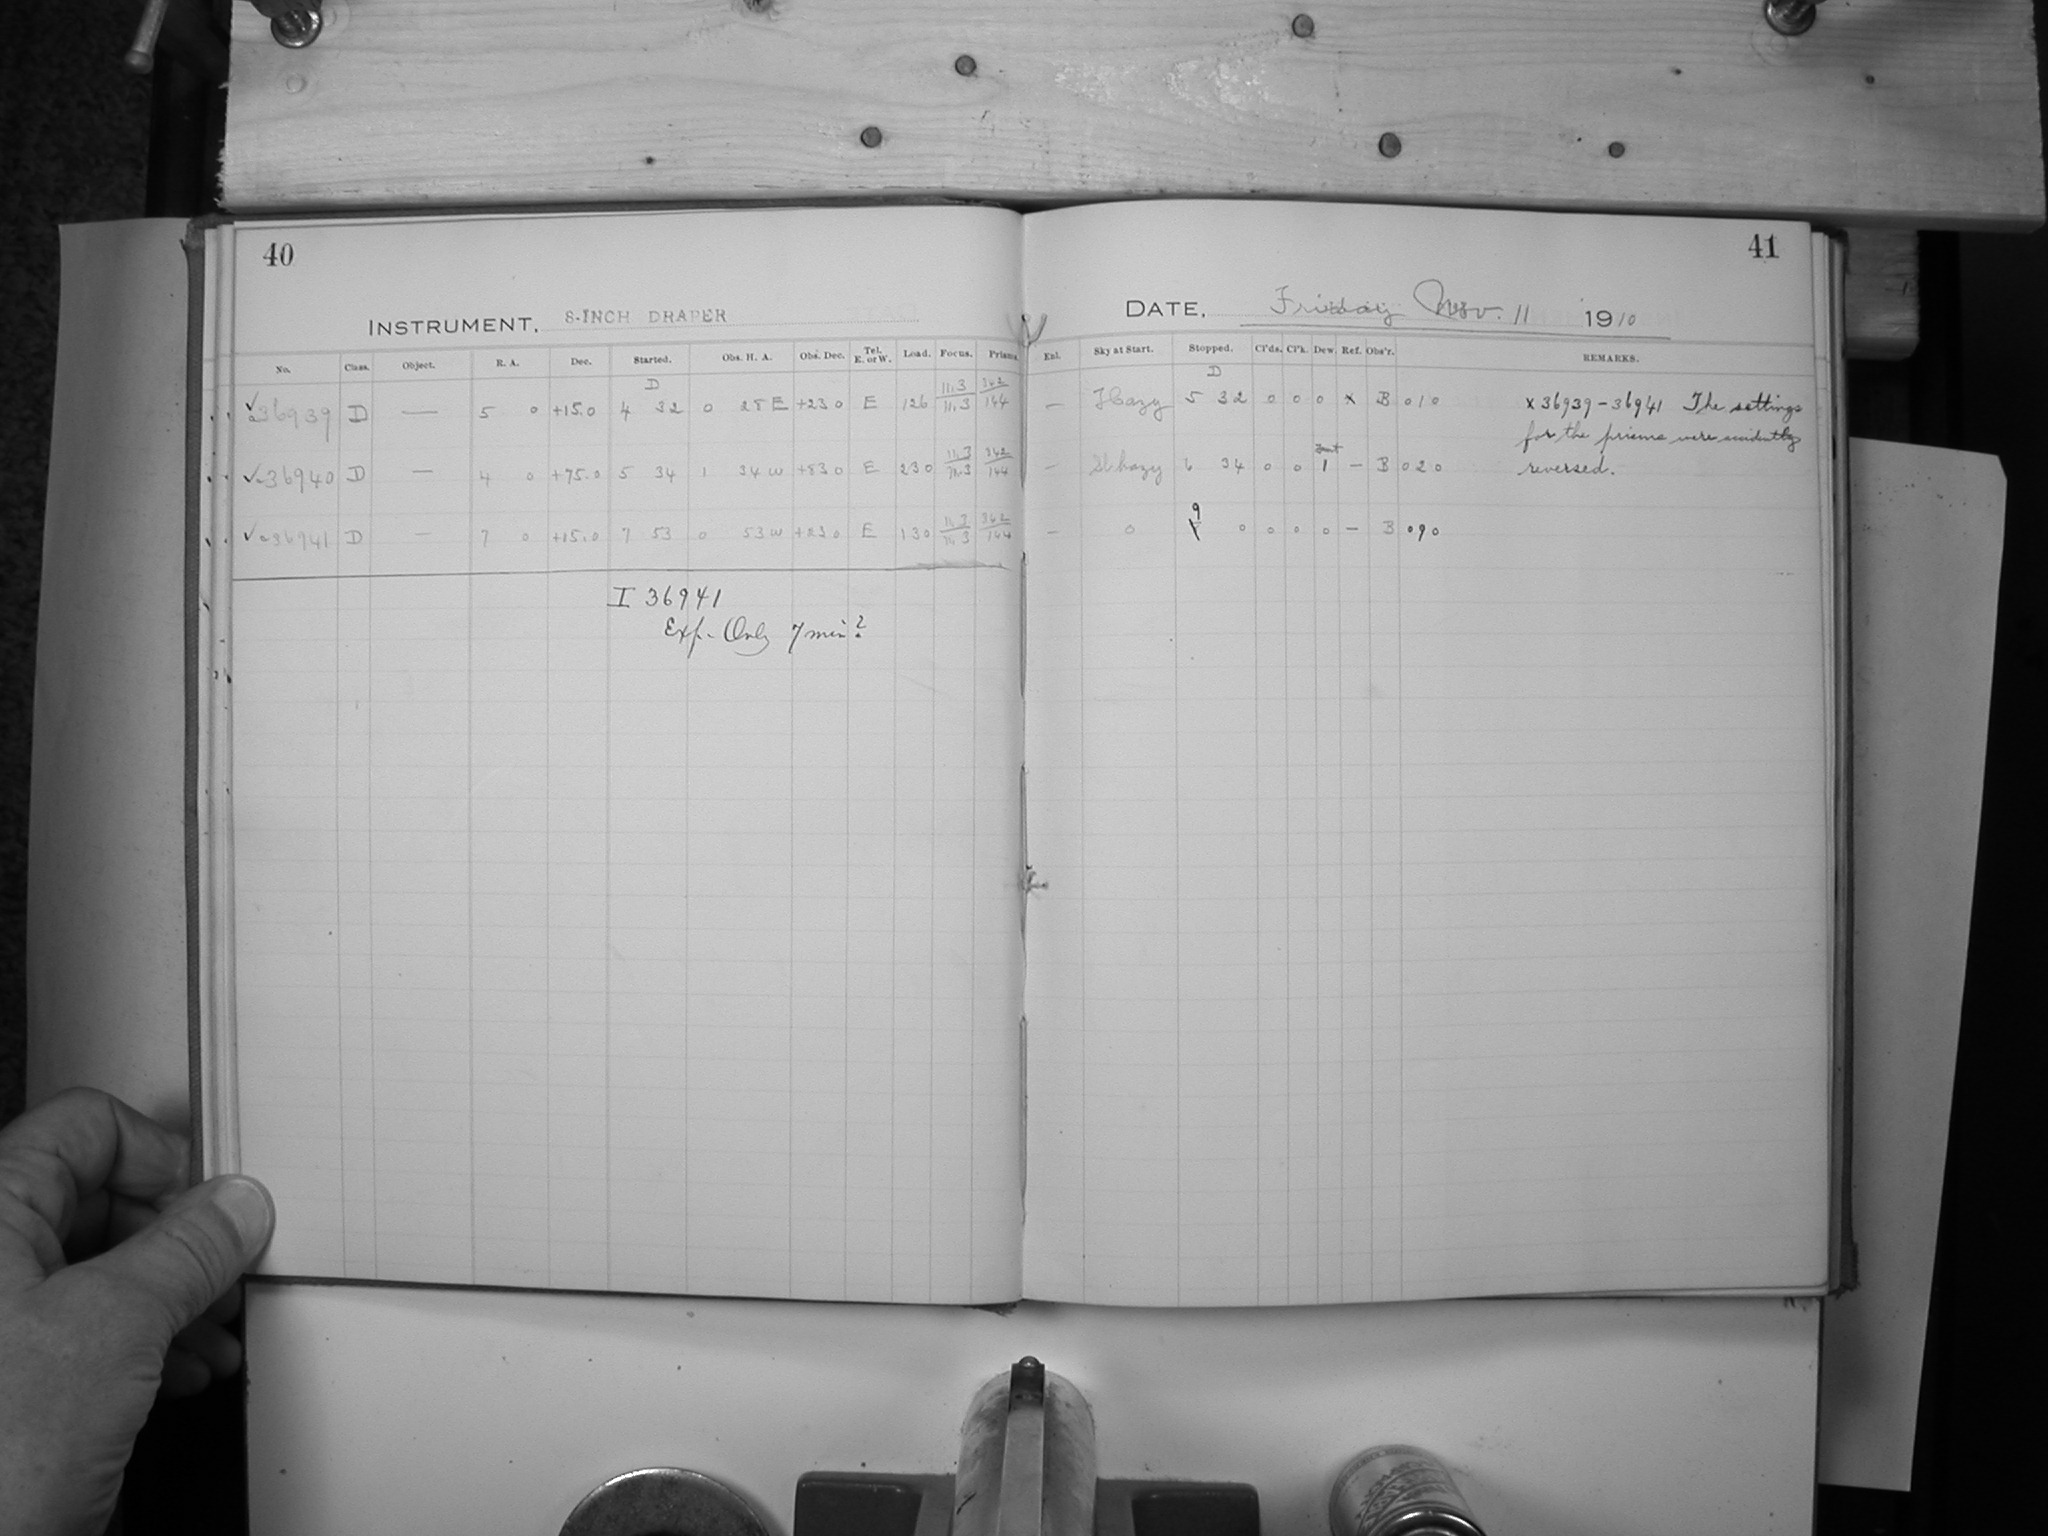 40
INSTRUMENT, 8-INCH DRAPER
No. Class. Object. R. A. Dec. Started. Obs. H. A. Obs. Dec. Tel. E. or W. Load. Focus. Prisms.
D
✓36939 D — 5 0 +15.0 4 32 0 28 E +23 0 E 126 11.3/11.3 342/144
✓36940 D — 4 0 +75.0 5 34 1 34 W +83 0 E 230 11.3/11.3 342/144
✓36941 D — 7 0 +15.0 7 53 0 53 W +23 0 E 130 11.3/11.3 342/144
I 36941
Exp. Only 7 min?
41
DATE, Friday Nov. 11 1910
Enl. Sky at Start. Stopped. Cl'ds. Cl'k. Dew. Ref. Obs'r. REMARKS.
D
— Hazy 5 32 0 0 0 x B 010 x 36939-36941 The settings
for the prisms were accidently
— Sl hazy 6 34 0 0 1 — B 020 reversed.
— 0 9 0 0 0 0 — B 090